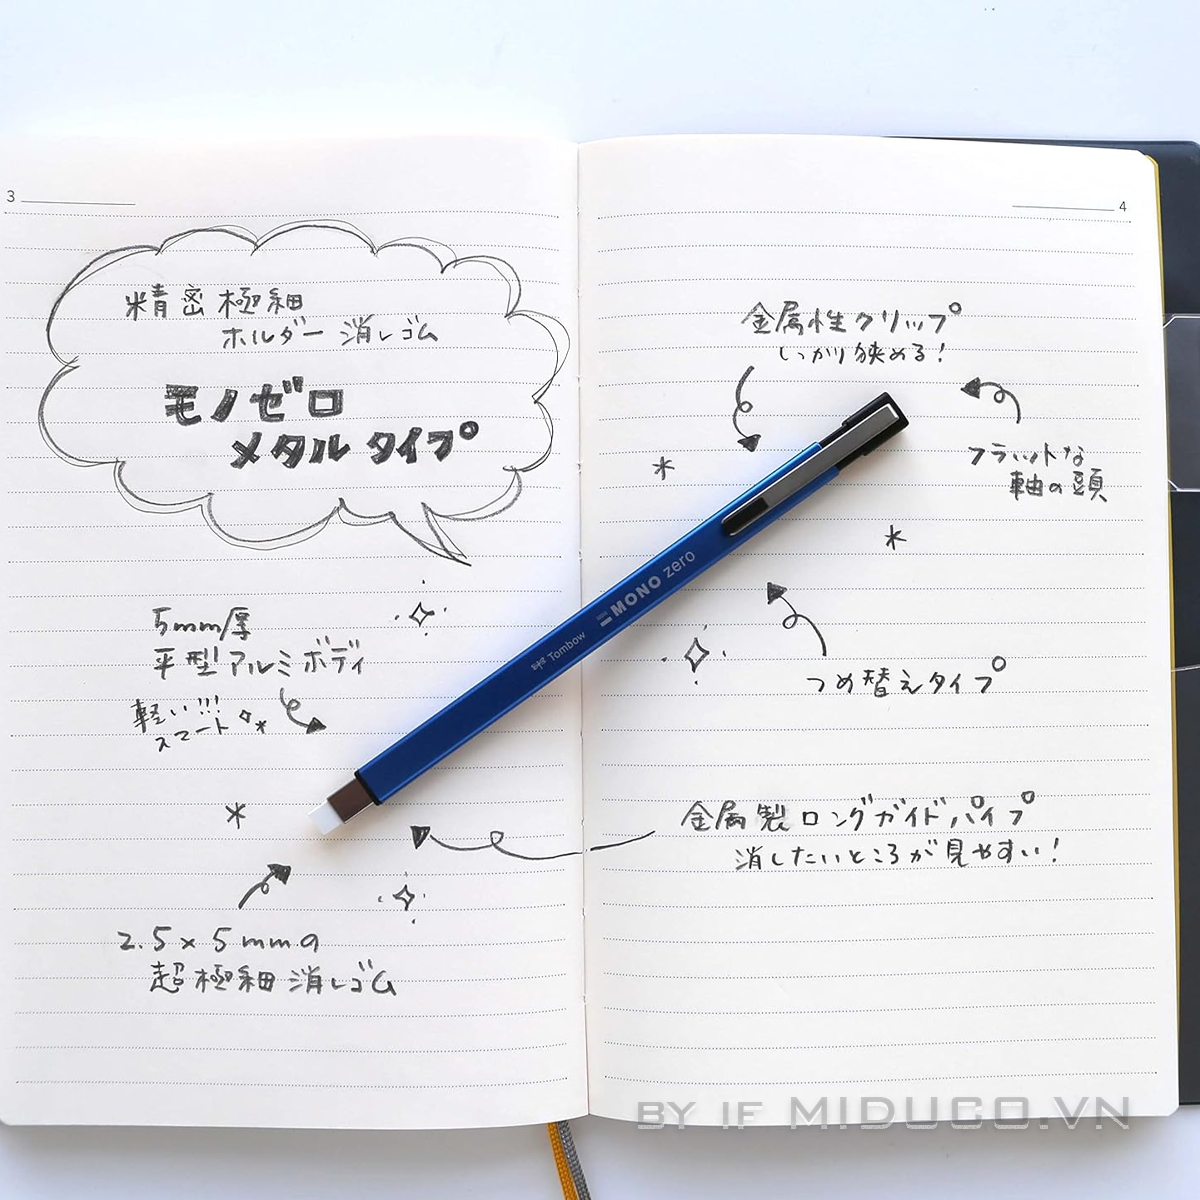 3
精密極細
ホルダー消しゴム
モノゼロ
メタルタイプ
5mm厚
平型アルミボディ
軽い!!!
スマート
2.5×5mmの
超極細消しゴム
4
金属性クリップ
しっかり狭める!
フラットな
軸の頭
MONO zero
Tombow
つめ替えタイプ
金属製ロングガイドパイプ
消したいところが見やすい!
BY IF MIDUCO.VN